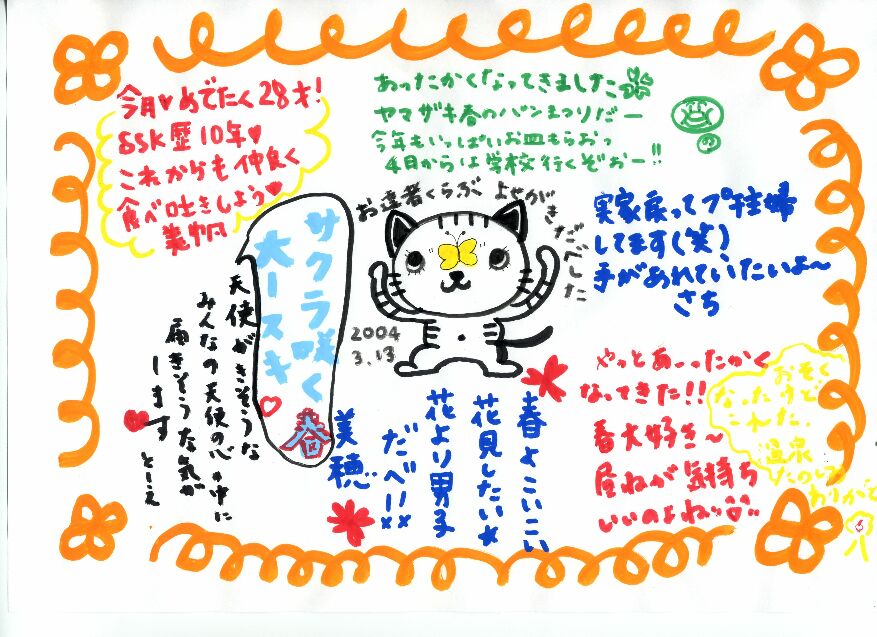 今月♥めでたく28才!
SSK歴10年♥
これからも仲良く
食べ吐きしよう♥
あったかくなってきました
ヤマザキ春のパンまつりだー
今年もいっぱいお皿もらおっ
4月からは学校行くぞぉー!!
の
お達者くらぶ よせがきだべした
実家戻ってプチ主婦
してます(笑)
手があれていたいよ〜
さち
サクラ咲く
大ースキ
春
2004
3.13
天使がきそうな
みんなの天使の心の中に
届きそうな気が
します
とーえ
春よこいこい
花見したい★
花より男子
だべー
美穂
やっとあーったかく
なってきた!!
春大好き〜
昼ねが気持ち
いいのよねッ
おそく
なったけど
これた。
温泉
たのしみ
ありがと